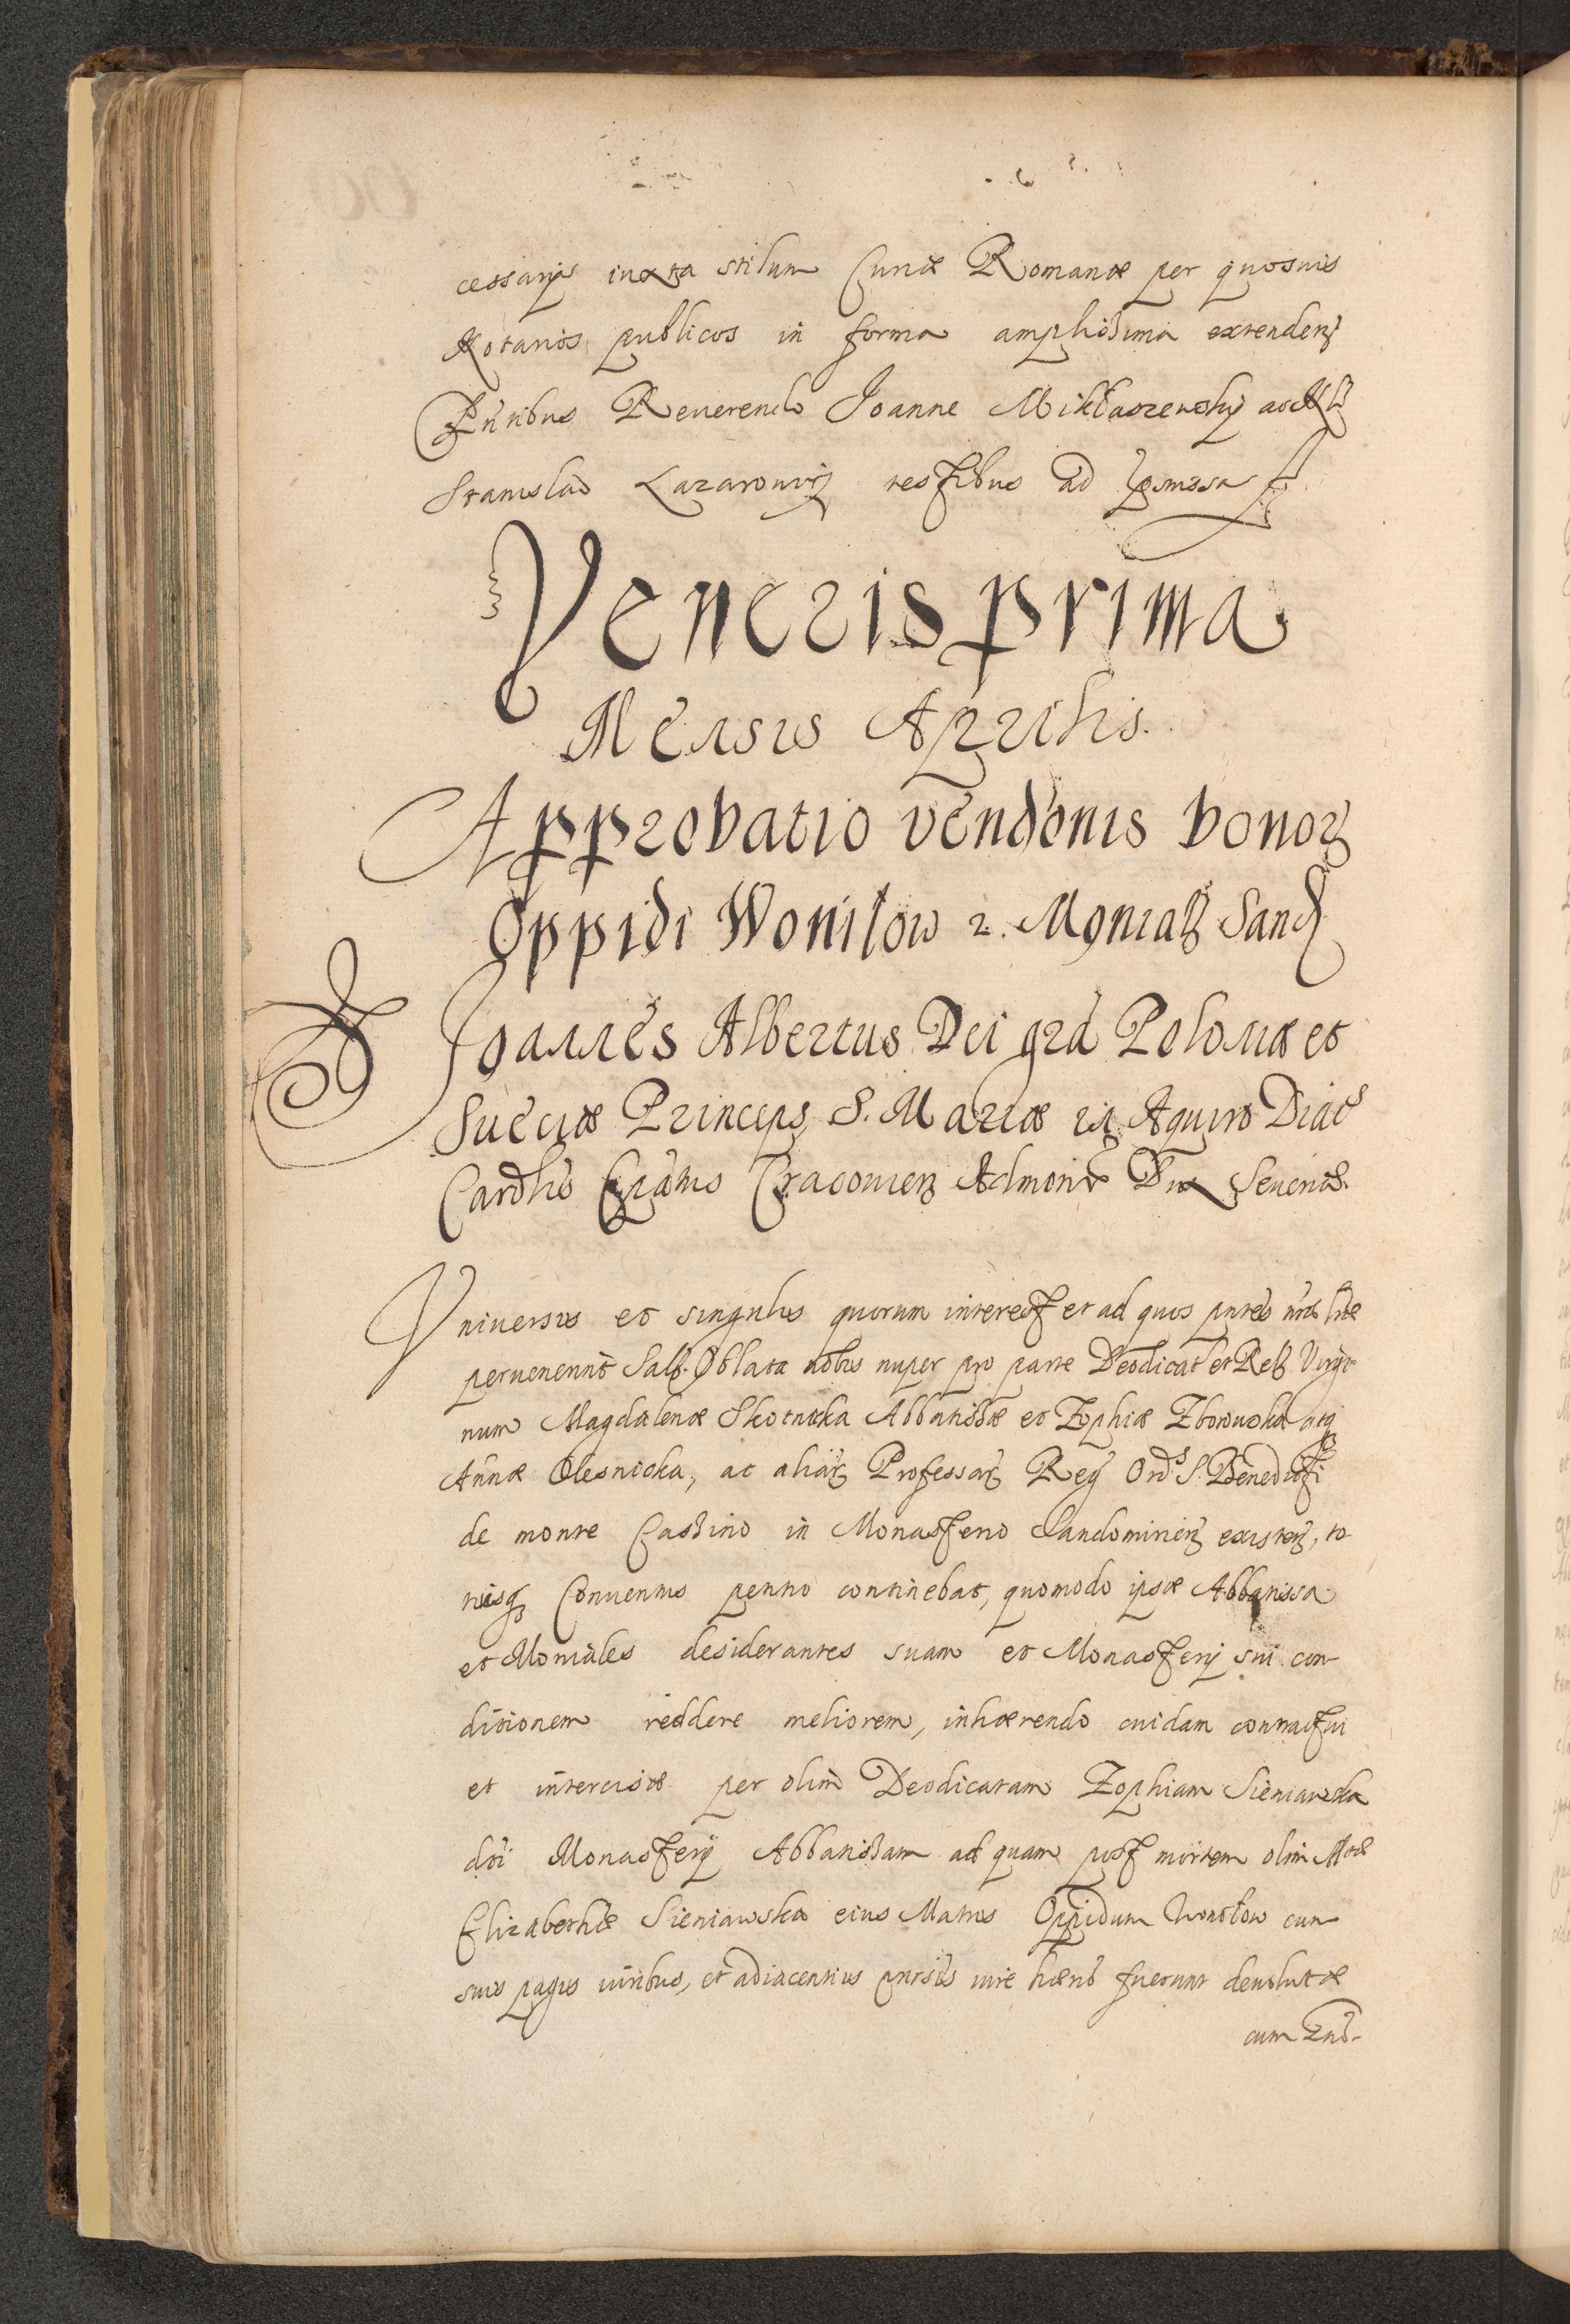 cessarijs iuxta stilum Curiæ Romanæ per quosuis
Notarios publicos in forma amplissima extenden
Pñtibus Reuerendo Joanne Miklaszewsky ac
Stanislao Lazarowicz testibus ad pmissa
Veneris prima
Mensis Aprilis.
Approbatio vendonis bonor
Oppidi Woniłow Monial Sand
Joannes Albertus Dei gra Poloniæ et
Sueciæ Princeps S. Mariæ in Aquiro Diac
Cardlis Epatus Cracouien Admor Dux Seueriæ
Vniuersis et singulis quorum interest et ad quos pntes nræ lræ
peruenerint Salt. Oblata nobis nuper pro parte Deodicat et Rel Virgi-
num Magdalenæ Skotnicka Abbatissæ et Zophiæ Zborowska atq
Annæ Olesnicka, ac aliar Professar Reg Ord S. Benedicti
de monte Cassino in Monasterio Sandomirien existen, to-
tiusq Conuentus petitio continebat, quomodo ipsæ Abbatissa
et Moniales desiderantes suam et Monasterij sui con-
ditionem reddere meliorem, inhærendo cuidam contractui
et intercisæ per olim Deodicatam Zophiam Sieniawska
dci Monasterij Abbatissam ad quam post mortem olim
Elizabethæ Sieniawska eius Matris Oppidum Woniłow cum
suis pagis iuribus, et adiacentius iure hæred fuerunt deuolutæ
cum